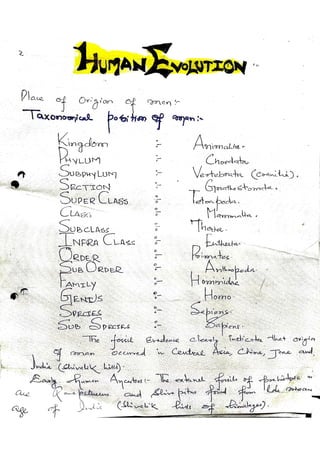 2
HUMAN EVOLUTION :-
Place of Origion of man:-
Taxonomical position of man:-
KINGDOM :- Animalia.
PHYLUM :- Chordata
SUBPHYLUM :- Vertebrata
SECTION :- Gnathostomata.
SUPER CLASS :- Tetrapoda.
CLASS :- Mammalia.
SUBCLASS :- Theria.
INFRA CLASS :- Eutheria.
ORDER :- Primates
SUB ORDER :- Anthropoda.
FAMILY :- Hominidae
GENUS :- Homo.
SPECIES :- Sapiens.
SUB SPECIES :- Sapiens.
The fossil Evidence clearly indicates that origin
of man occurred in Central Asia, China, Java and
India (Shivalik Hills).
Early human Ancestors:- The fossils of
are and found from
age of India (Shivalik hills of Himalayas).